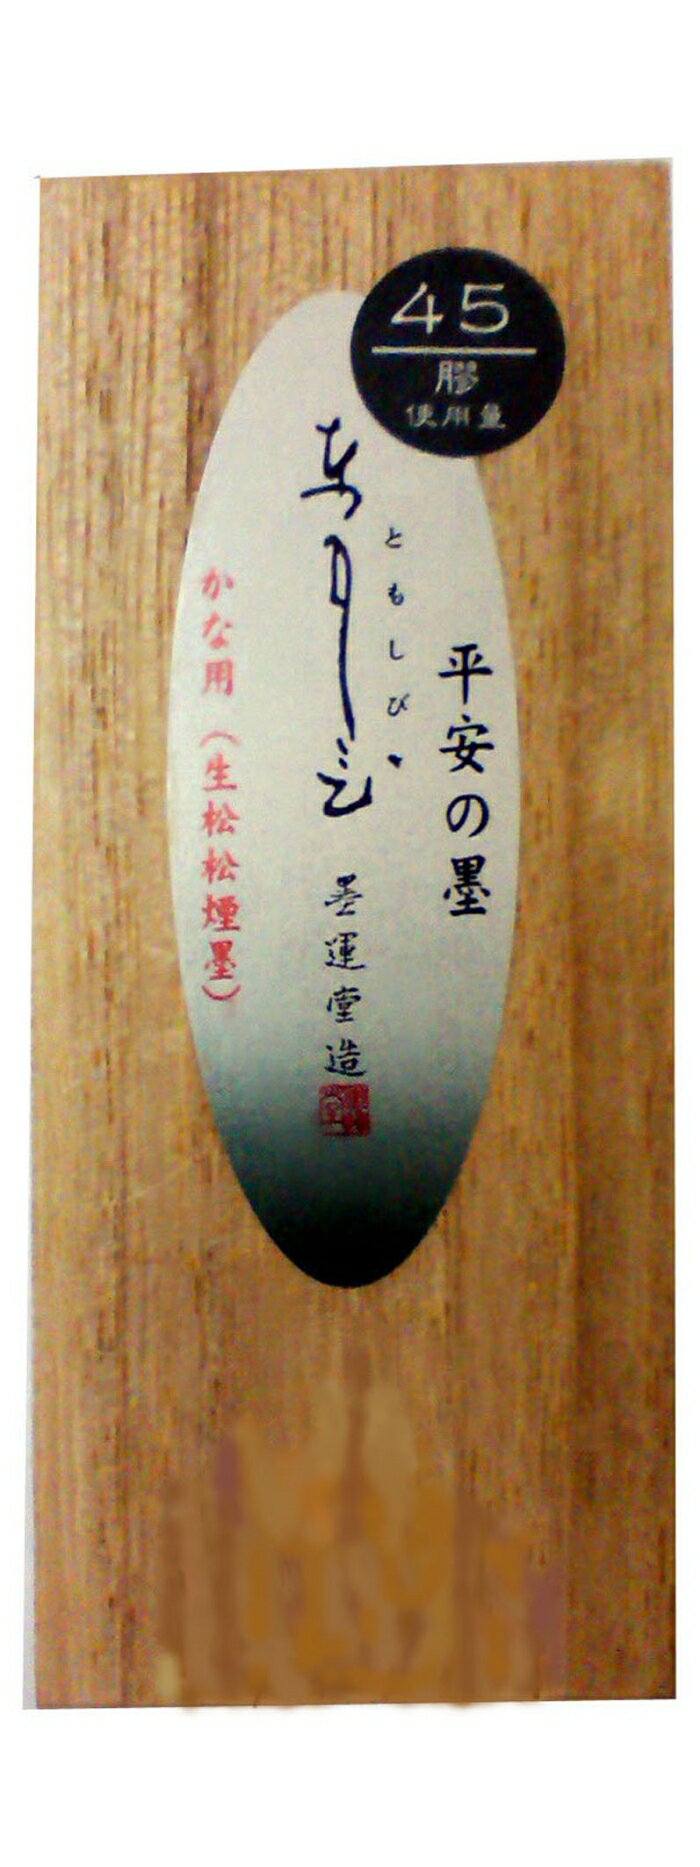 45
膠
使用量
平安の墨
ともしび
墨運堂造
かな用（生松松煙墨）